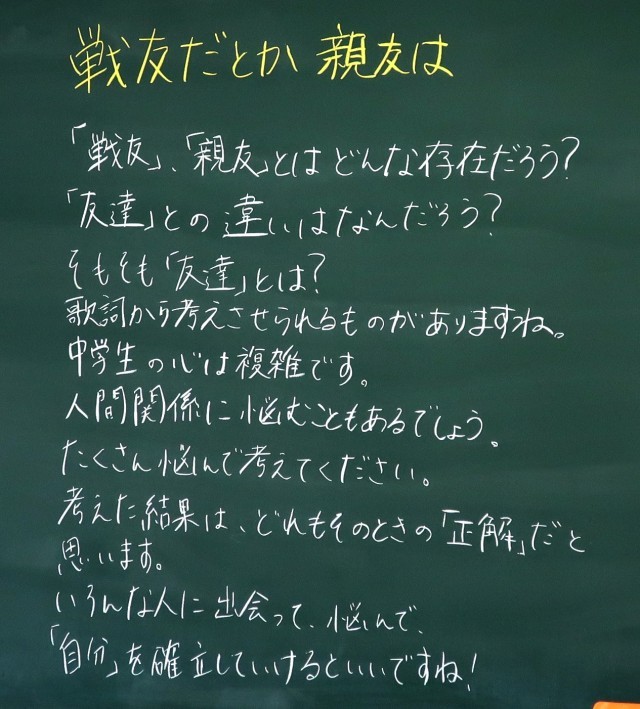 戦友だとか 親友は
「戦友」、「親友」とは どんな存在だろう?
「友達」との違いはなんだろう?
そもそも「友達」とは?
歌詞から考えさせられるものがありますね。
中学生の心は複雑です。
人間関係に悩むこともあるでしょう。
たくさん悩んで考えてください。
考えた結果は、どれもそのときの「正解」だと
思います。
いろんな人に出会って、悩んで、
「自分」を確立していけるといいですね!